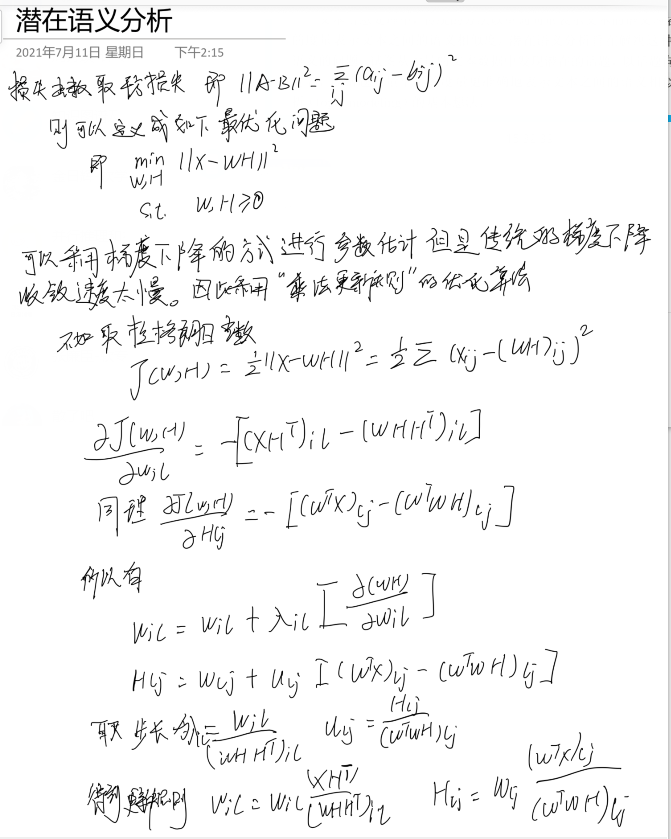 潜在语义分析
2021年7月11日 星期日 下午2:15
损失函数取平方损失 即 ||A-B||² = Σ_{ij} (a_{ij} - b_{ij})²
则可以定义成如下最优化问题
即 min_{W,H} ||X-WH||²
s.t. W,H≥0
可以采用梯度下降的方式进行参数估计 但是传统的梯度下降
收敛速度太慢。因此采用“乘法更新规则”的优化算法
不如取拉格朗日函数
J(W,H) = ½||X-WH||² = ½ Σ (X_{ij} - (WH)_{ij})²
∂J(W,H)/∂W_{il} = -[(XHᵀ)_{il} - (WHHᵀ)_{il}]
同理 ∂J(W,H)/∂H_{lj} = -[(WᵀX)_{lj} - (WᵀWH)_{lj}]
所以有
W_{il} = W_{il} + λ_{il} [∂(WH)/∂W_{il}]
H_{lj} = W_{lj} + u_{lj} [(WᵀX)_{lj} - (WᵀWH)_{lj}]
取步长 λ_{il} = W_{il}/(WHHᵀ)_{il} u_{lj} = H_{lj}/(WᵀWH)_{lj}
得到更新规则 W_{il} = W_{il} (XHᵀ)/(WHHᵀ)_{il} H_{lj} = W_{lj} (WᵀX)_{lj}/(WᵀWH)_{lj}